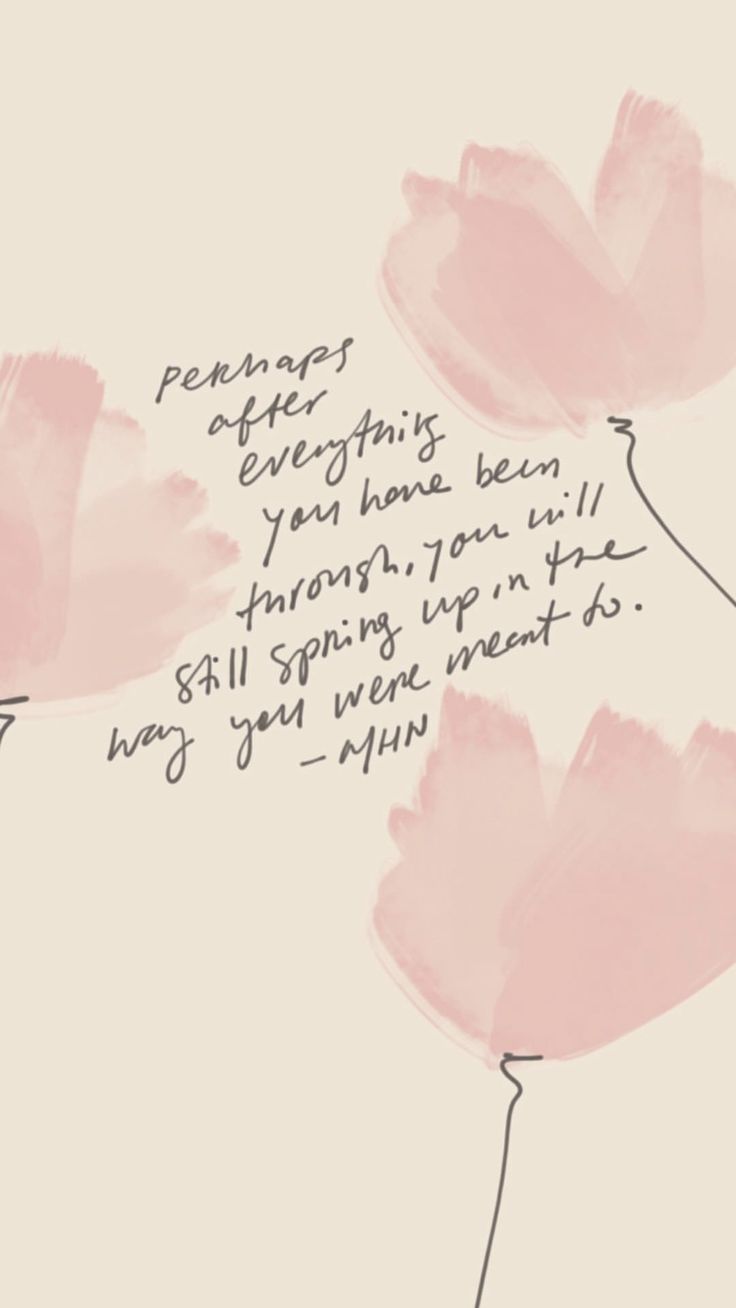 perhaps
after
everything
you have been
through, you will
still spring up in the
way you were meant to.
– MHN